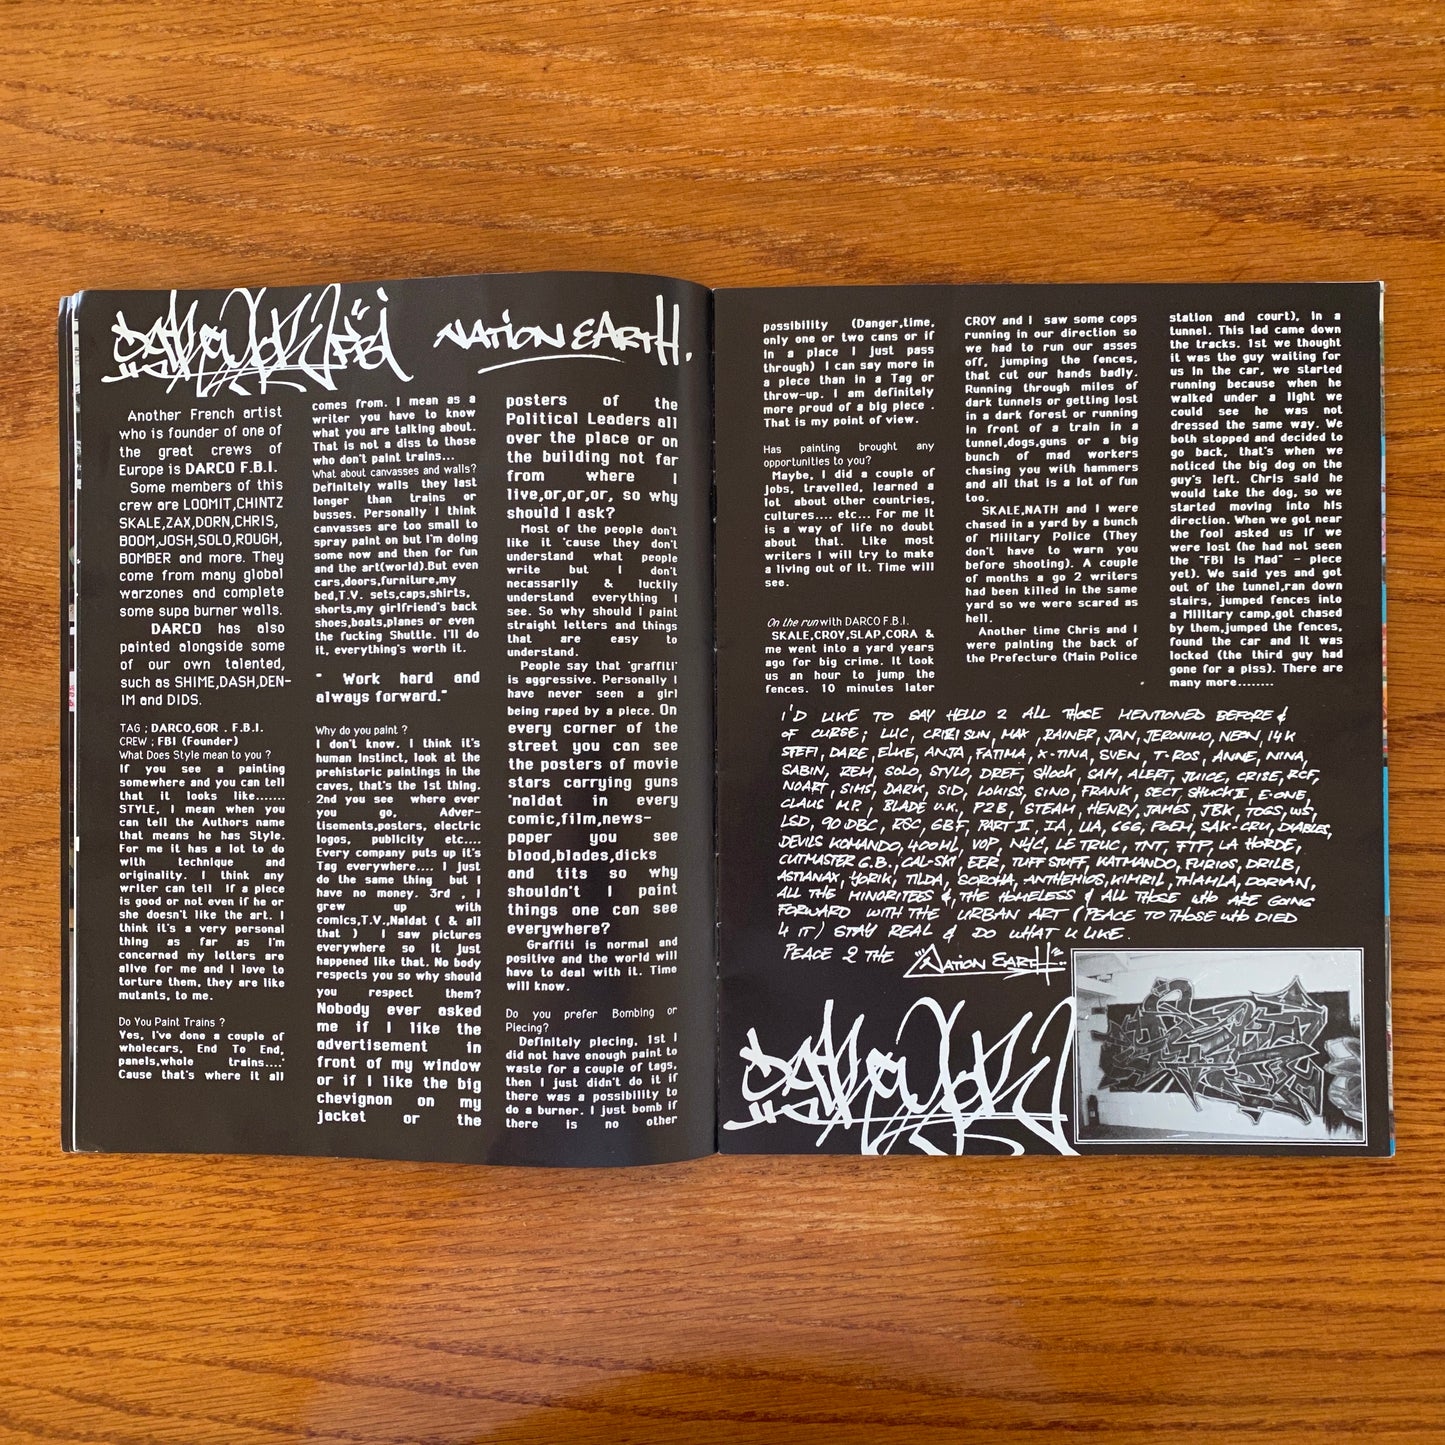 NATION EARTH.
Another French artist
who is founder of one of
the great crews of
Europe is DARCO F.B.I.
Some members of this
crew are LOOMIT,CHINTZ
SKALE,ZAX,DORN,CHRIS,
BOOM,JOSH,SOLO,ROUGH,
BOMBER and more. They
come from many global
warzones and complete
some supa burner walls.
DARCO has also
painted alongside some
of our own talented,
such as SHIME,DASH,DEN-
IM and DIDS.
TAG ; DARCO,GOR . F.B.I.
CREW ; FBI (Founder)
What Does Style mean to you ?
If you see a painting
somewhere and you can tell
that it looks like.......
STYLE, I mean when you
can tell the Authors name
that means he has Style.
For me it has a lot to do
with technique and
originality. I think any
writer can tell If a piece
is good or not even if he or
she doesn't like the art. I
think it's a very personal
thing as far as I'm
concerned my letters are
alive for me and I love to
torture them, they are like
mutants, to me.
Do You Paint Trains ?
Yes, I've done a couple of
wholecars, End To End,
panels,whole trains....
Cause that's where it all
comes from. I mean as a
writer you have to know
what you are talking about.
That is not a diss to those
who don't paint trains...
What about canvasses and walls?
Definitely walls they last
longer than trains or
busses. Personally I think
canvasses are too small to
spray paint on but I'm doing
some now and then for fun
and the art(world).But even
cars,doors,furniture,my
bed,T.V. sets,caps,shirts,
shorts,my girlfriend's back
shoes,boats,planes or even
the fucking Shuttle. I'll do
it, everything's worth it.
" Work hard and
always forward."
Why do you paint ?
I don't know. I think it's
human instinct, look at the
prehistoric paintings in the
caves, that's the 1st thing.
2nd you see where ever
you go, Adver-
tisements,posters, electric
logos, publicity etc....
Every company puts up it's
Tag everywhere.... I just
do the same thing but I
have no money. 3rd , I
grew up with
comics,T.V.,Naldat ( & all
that ) I saw pictures
everywhere so it just
happened like that. No body
respects you so why should
you respect them?
Nobody ever asked
me if I like the
advertisement in
front of my window
or if I like the big
chevignon on my
jacket or the
posters of the
Political Leaders all
over the place or on
the building not far
from where I
live,or,or,or, so why
should I ask?
Most of the people don't
like it 'cause they don't
understand what people
write but I don't
necassarily & luckily
understand everything I
see. So why should I paint
straight letters and things
that are easy to
understand.
People say that 'graffiti'
is aggressive. Personally I
have never seen a girl
being raped by a piece. On
every corner of the
street you can see
the posters of movie
stars carrying guns
'naldat in every
comic,film,news-
paper you see
blood,blades,dicks
and tits so why
shouldn't I paint
things one can see
everywhere?
Graffiti is normal and
positive and the world will
have to deal with it. Time
will know.
Do you prefer Bombing or
Piecing?
Definitely piecing, 1st I
did not have enough paint to
waste for a couple of tags,
then I just didn't do it if
there was a possibility to
do a burner. I just bomb if
there is no other
possibility (Danger,time,
only one or two cans or if
in a place I just pass
through) I can say more in
a piece than in a Tag or
throw-up. I am definitely
more proud of a big piece .
That is my point of view.
Has painting brought any
opportunities to you?
Maybe, I did a couple of
jobs, travelled, learned a
lot about other countries,
cultures.... etc... For me It
is a way of life no doubt
about that. Like most
writers I will try to make
a living out of it. Time will
see.
On the run with DARCO F.B.I.
SKALE,CROY,SLAP,CORA &
me went into a yard years
ago for big crime. It took
us an hour to jump the
fences. 10 minutes later
CROY and I saw some cops
running in our direction so
we had to run our asses
off, jumping the fences,
that cut our hands badly.
Running through miles of
dark tunnels or getting lost
in a dark forest or running
in front of a train in a
tunnel,dogs,guns or a big
bunch of mad workers
chasing you with hammers
and all that is a lot of fun
too.
SKALE,NATH and I were
chased in a yard by a bunch
of Military Police (They
don't have to warn you
before shooting). A couple
of months a go 2 writers
had been killed in the same
yard so we were scared as
hell.
Another time Chris and I
were painting the back of
the Prefecture (Main Police
station and court), in a
tunnel. This lad came down
the tracks. 1st we thought
it was the guy waiting for
us in the car, we started
running because when he
walked under a light we
could see he was not
dressed the same way. We
both stopped and decided to
go back, that's when we
noticed the big dog on the
guy's left. Chris said he
would take the dog, so we
started moving into his
direction. When we got near
the fool asked us if we
were lost (he had not seen
the "FBI is Mad" - piece
yet). We said yes and got
out of the tunnel,ran down
stairs, jumped fences into
a Military camp,got chased
by them,jumped the fences,
found the car and it was
locked (the third guy had
gone for a piss). There are
many more........
I'D LIKE TO SAY HELLO 2 ALL THOSE MENTIONED BEFORE &
OF CURSE; LUC, CRIZI SUN, MAX, RAINER, JAN, JERONIMO, NEON, 14K
STEFI, DARE, ELKE, ANJA, FATIMA, X-TINA, SVEN, T-ROS, ANNE, NINA,
SABIN, REM, SOLO, STYLO, DREF, SHOCK, SAM, ALERT, JUICE, CRISE, RCF,
NOART, SIMS, DARK, SID, LOKISS, SINO, FRANK, SECT, SHUCK II, E.ONE,
CLAUS M.P., BLADE U.K., P2B, STEAM, HENRY, JAMES, JBK, TOGS, WS,
LSD, 90 DBC, RSC, GBF, PART II, IA, UA, 666, POEM, SAK-CRU, DIABLES,
DEVILS KOMANDO, 400ML, VOP, NYC, LE TRUC, TNT, FTP, LA HORDE,
CUTMASTER G.B., CAL-SKI, EER, TUFF STUFF, KATMANDO, FURIOS, DRILB,
ASTIANAX, YORIK, TILDA, SOROHA, ANTHEMIOS, KIMRIL, THAHLA, DORIAN,
ALL THE MINORITEES &, THE HOMELESS & ALL THOSE WHO ARE GOING
FORWARD WITH THE URBAN ART (PEACE TO THOSE WHO DIED
4 IT) STAY REAL & DO WHAT U LIKE.
PEACE 2 THE NATION EARTH